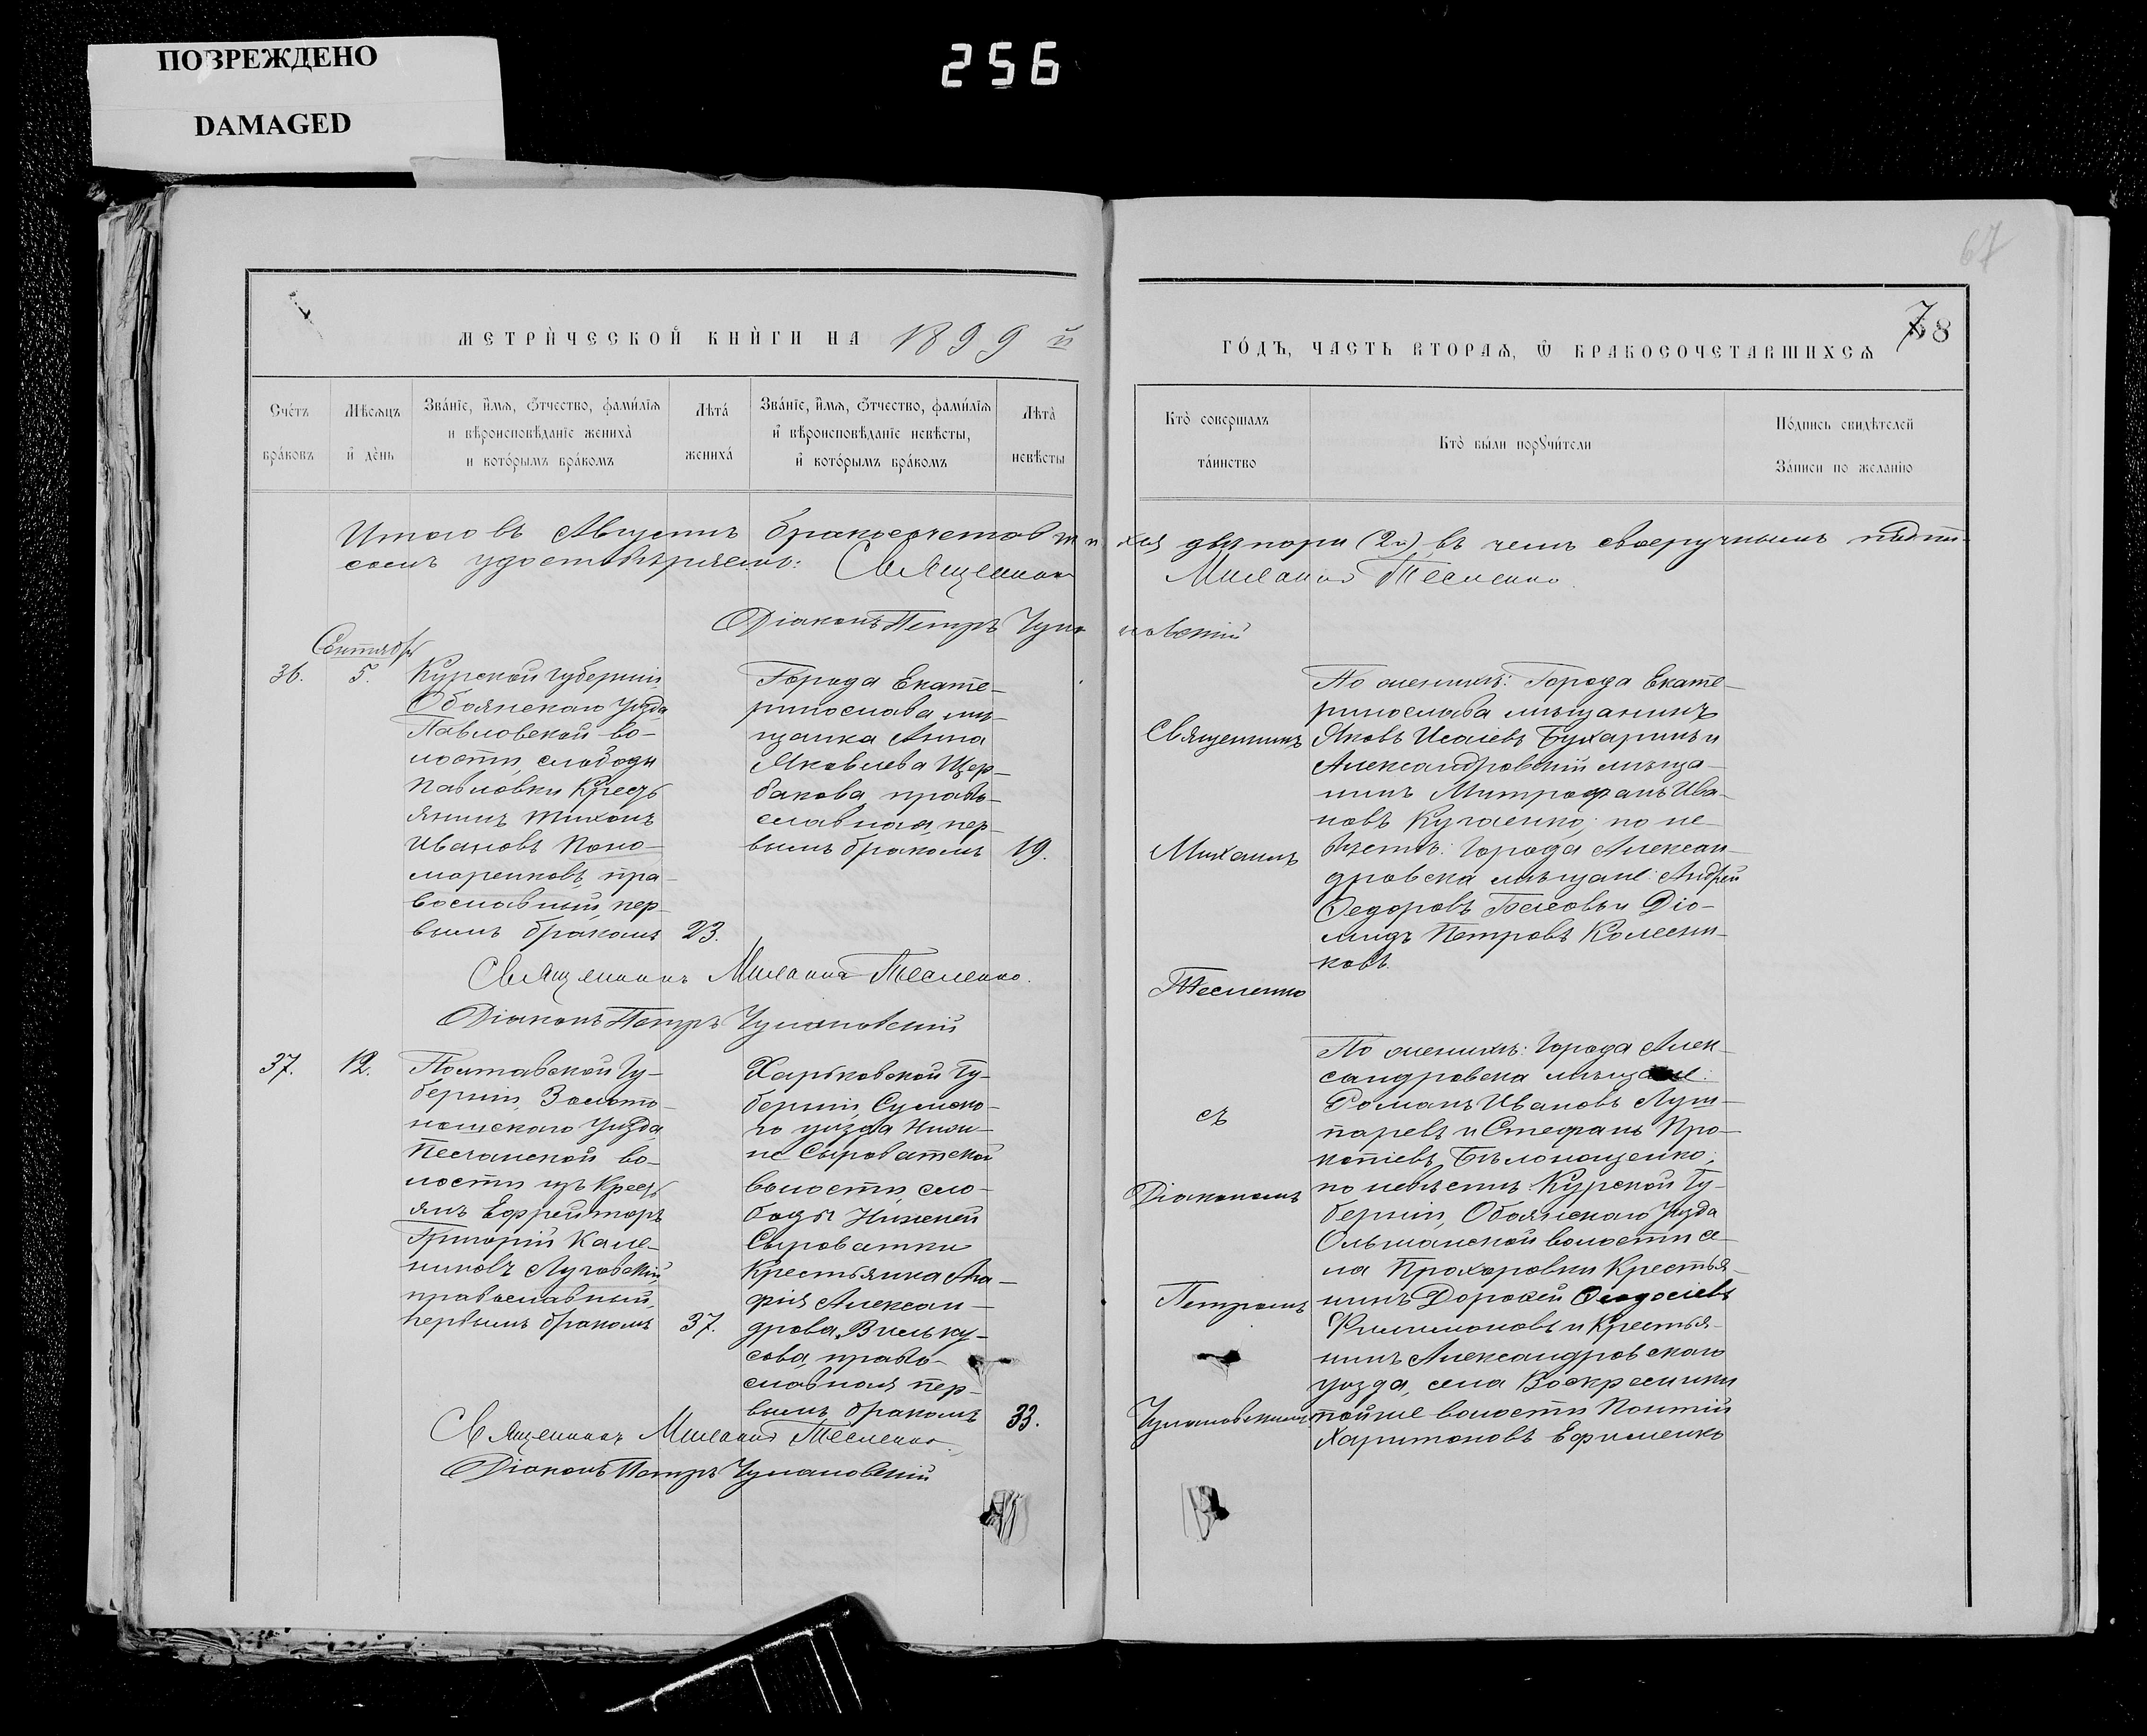 ПОВРЕЖДЕНО
DAMAGED
256
67
78
МЕТРИЧЕСКОЙ КНИГИ НА 1899 й
ГОДЪ, ЧАСТЬ ВТОРАЯ, Ѿ БРАКОСОЧЕТАВШИХСЯ
Счетъ браковъ
Мѣсяцъ и день
Званіе, имя, Отчество, фамилія
и вѣроисповѣданіе жениха
и которымъ бракомъ
Лѣта
жениха
Званіе, имя, Отчество, фамилія
и вѣроисповѣданіе невѣсты,
и которымъ бракомъ
Лѣта
невѣсты
Кто совершалъ
таинство
Кто были поручители
Подпись свидѣтелей
Записи по желанію
Итого въ Августѣ бракосочетавшихся двѣ пары (2) въ чемъ своеручнымъ подпи-
сомъ удостовѣряемъ: Священникъ Михаилъ Тесленко.
Діаконъ Петръ Чумановскій
Сентябрь
36.
5.
Курской губерніи,
Обоянскаго уѣзда
Павловской во-
лости, слободы
Павловки Кресть
янинъ Тихонъ
Ивановъ Поно-
маренковъ, пра-
вославный, пер-
вымъ бракомъ
23.
Города Екате-
ринослава мѣ-
щанка Анна
Яковлева Щер-
бакова, право-
славная, пер-
вымъ бракомъ
19.
Священникъ
Михаилъ
Тесленко
По женихѣ: Города Екате-
ринослава мѣщанинъ
Яковъ Исаевъ Бухаринъ и
Александровскій мѣща-
нинъ Митрофанъ Ива-
новъ Кугаенко; по не-
вѣстѣ: Города Алексан-
дровска мѣщане: Андрей
Федоровъ Белевъ и Діо-
мидъ Петровъ Колесни-
ковъ.
Священникъ Михаилъ Тесленко.
Діаконъ Петръ Чумановскій
37.
12.
Полтавской Гу-
берніи, Золото-
ношскаго уѣзда,
Песчанской во-
лости изъ Кресть
янъ Ефрейторъ
Григорій Кале-
никовъ Луговскій,
православный,
первымъ бракомъ
37.
Харьковской Гу-
берніи, Сумска-
го уѣзда Ниж-
не Сыроватской
волости, сло-
боды Нижней
Сыроватки
Крестьянка Ага-
фія Алексан-
дрова Вильку-
сова, право-
славная, пер-
вымъ бракомъ
33.
съ
Діакономъ
Петромъ
Чумановскимъ
По женихѣ: Города Алек-
сандровска мѣщане:
Романъ Ивановъ Луш-
паревъ и Стефанъ Про-
копіевъ Бѣлонощенко;
по невѣстѣ: Курской Гу-
берніи, Обоянскаго уѣзда
Ольшанской волости се-
ла Прохоровки Крестья-
нинъ Дорофей Феодосіевъ
Филимоновъ и Крестья-
нинъ Александровскаго
уѣзда, села Воскресенки
тойже волости Понтій
Харитоновъ Ефименко
Священникъ Михаилъ Тесленко.
Діаконъ Петръ Чумановскій